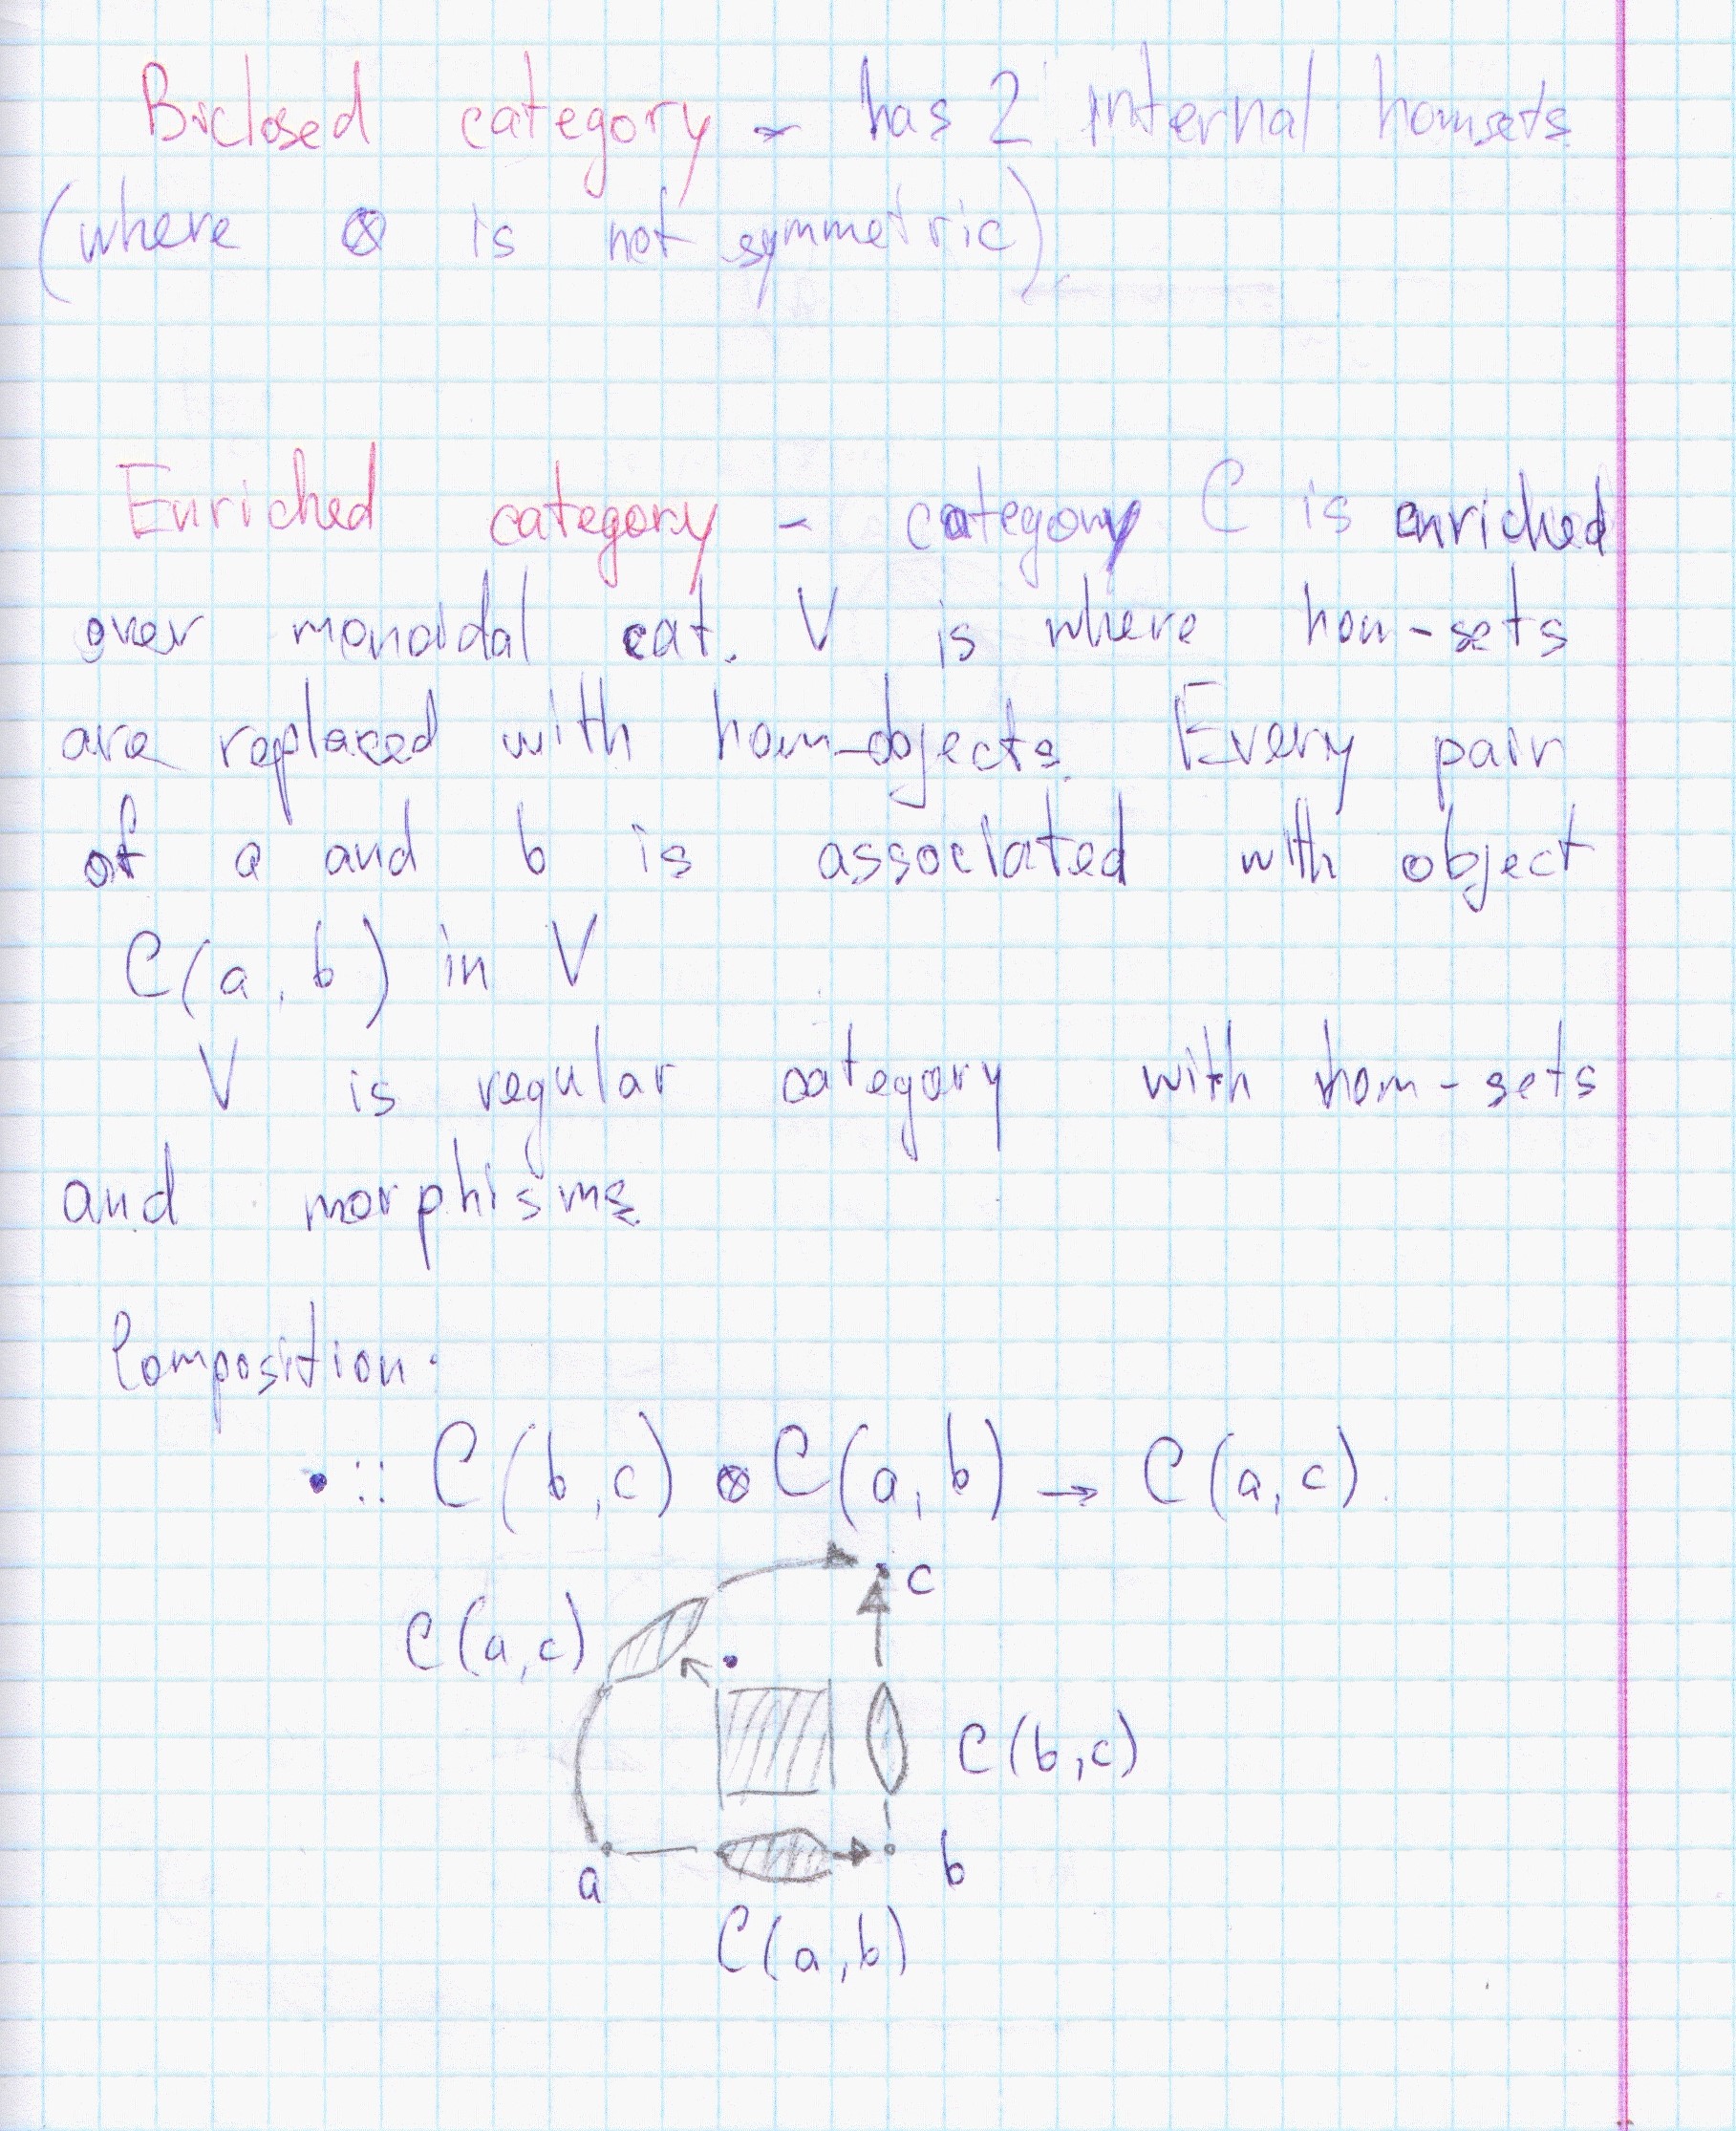 Biclosed category - has 2 internal homsets
(where ⊗ is not symmetric).
Enriched category - category C is enriched
over monoidal cat. V is where hom-sets
are replaced with hom-objects. Every pair
of a and b is associated with object
C(a, b) in V
V is regular category with hom-sets
and morphisms
Composition:
• :: C(b, c) ⊗ C(a, b) → C(a, c).
c
C(a, c)
•
C(b, c)
a
b
C(a, b)